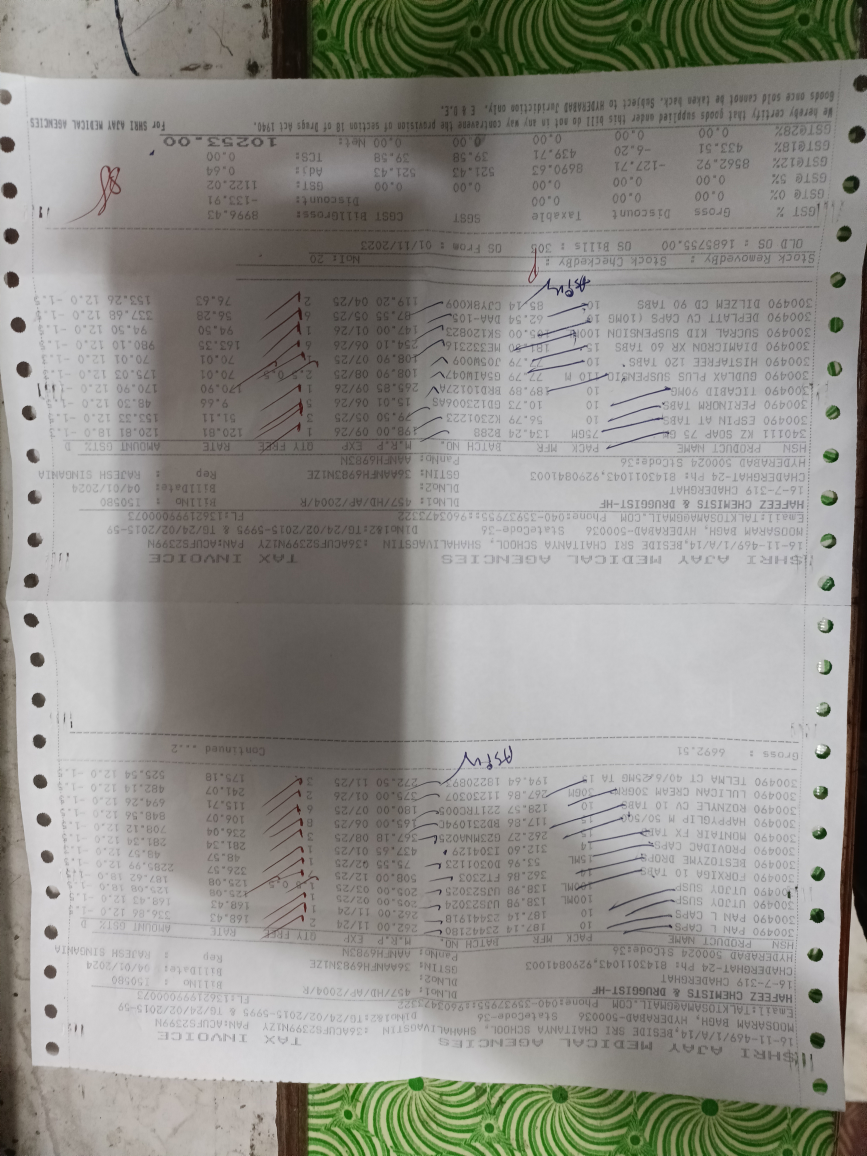 SHRI AJAY MEDICAL AGENCIES TAX INVOICE
16-11-469/1/A/14,BESIDE SRI CHAITANYA SCHOOL, SHAHALIVAGSTIN :36ACUFS2399N1ZY PAN:ACUFS2399N
MOOSARAM BAGH, HYDERABAD-500036 StateCode-36 DlNo1&2:TG/24/02/2015-5995 & TG/24/02/2015-59
Email:TALKTOSAMA@GMAIL.COM Phone:040-35937955:9603473322 FL:13621999000073
HAFEEZ CHEMISTS & DRUGGIST-HF DLNo1: 457/HD/AP/2004/R BillNo : 150580
16-7-319 CHADERGHAT DLNo2: BillDate: 04/01/2024
CHADERGHAT-24 Ph: 8143011043,9290841003 GSTIN: 36AAHFH6983N1ZE Rep : RAJESH SINGANIA
HYDERABAD 500024 StCode:36 PanNo: AAHFH6983N
HSN PRODUCT NAME PACK MFR BATCH NO. M.R.P EXP QTY FREE RATE AMOUNT GST% D
300490 PAN L CAPS 10 187.14 23442180 262.00 11/24 2 168.43 336.86 12.0 -1.5
300490 PAN L CAPS 10 187.14 23441918 262.00 11/24 1 168.43 168.43 12.0 -1.5
300490 UTJOY SUSP 100ML 138.98 UJS23024 205.00 02/25 1 125.08
300490 UTJOY SUSP 100ML 138.98 UJS23025 205.00 03/25 125.08 187.62
300490 FORXIGA 10 TABS 362.86 FT2302 508.00 12/25 326.57 2285.99
300490 BESTOZYME DROPS 15ML 53.96 D0301123 75.55 1 48.57 48.57 12.0 -1.5
300490 PROVIDAC CAPS 312.60 13041129 437.65 01/25 1 281.34 281.34 12.0 -1.5
300490 MONTAIR FX TABS 15 262.27 367.18 08/25 3 236.04 708.12 12.0 -1.5
300490 HAPPYGLIP M 50/500 15 117.86 165.00 06/25 8 106.07 848.56 12.0 -1.5
300490 ROZNULE CV 10 TABS 10 128.57 180.00 07/25 6 115.71 694.26 12.0 -1.5
300490 LULICAN CREAM 30GRM 30GM 267.86 11230307 375.00 01/26 2 241.07 482.14 12.0 -1.5
300490 TELMA CT 40/6.25MG TA 15 194.64 18220893 272.50 11/25 3 175.18 525.54 12.0 -1.5
Gross : 6692.51 Continued ...2
SHRI AJAY MEDICAL AGENCIES TAX INVOICE
16-11-469/1/A/14,BESIDE SRI CHAITANYA SCHOOL, SHAHALIVAGSTIN :36ACUFS2399N1ZY PAN:ACUFS2399N
MOOSARAM BAGH, HYDERABAD-500036 StateCode-36 DlNo1&2:TG/24/02/2015-5995 & TG/24/02/2015-59
Email:TALKTOSAMA@GMAIL.COM Phone:040-35937955:9603473322 FL:13621999000073
HAFEEZ CHEMISTS & DRUGGIST-HF DLNo1: 457/HD/AP/2004/R BillNo : 150580
16-7-319 CHADERGHAT DLNo2: BillDate: 04/01/2024
CHADERGHAT-24 Ph: 8143011043,9290841003 GSTIN: 36AAHFH6983N1ZE Rep : RAJESH SINGANIA
HYDERABAD 500024 StCode:36 PanNo: AAHFH6983N
HSN PRODUCT NAME PACK MFR BATCH NO. M.R.P EXP QTY FREE RATE AMOUNT GST% D
340111 KZ SOAP 75 GM 75GM 134.24 B28B 198.00 09/26 1 120.81 120.81 18.0 -1.5
300490 ESPIN AT TABS 10 56.79 KZ301223 79.50 05/25 3 51.11 153.33 12.0 -1.5
300490 PERINORM TABS 10 10.73 GD12300 15.01 06/26 5 9.66 48.30 12.0 -1.5
300490 TICABID 90MG 10 189.89 BRD10127A 265.85 09/26 1 170.90 170.90 12.0 -1.5
300490 GUDLAX PLUS SUSPENSIO 110 M 77.79 GSAIM047 108.90 08/25 2.5 0.5 70.01 175.03 12.0 -1.5
300490 HISTAFREE 120 TABS 10 77.79 J05M009 108.90 07/25 1 70.01 70.01 12.0 -1.5
300490 DIAMICRON XR 60 TABS 15 181.50 ME332316 254.10 06/26 6 163.35 980.10 12.0 -1.5
300490 SUCRAL KID SUSPENSION 100M 105.00 SK120823 147.00 01/26 1 94.50 94.50 12.0 -1.5
300490 DEPLATT CV CAPS (10MG 10 62.54 DAA-105 87.55 05/25 6 56.28 337.68 12.0 -1.5
300490 DILZEM CD 90 TABS 10 85.14 CJBYRK009 119.20 04/25 2 76.63 153.26 12.0 -1.5
Stock RemovedBy : Stock CheckedBy : NoI: 20
OLD OS : 1685755.00 OS Bills : 305 OS From : 01/11/2023
GST % Gross Discount Taxable SGST CGST BillGross: 8996.43
GST@ 0% 0.00 0.00 0.00 0.00 0.00 Discount: -133.91
GST@ 5% 0.00 0.00 0.00 0.00 0.00 GST: 1122.02
GST@12% 8562.92 -127.71 8690.63 521.43 521.43 Adj: 0.64
GST@18% 433.51 -6.20 439.71 39.58 39.58 TCS: 0.00
GST@28% 0.00 0.00 0.00 0.00 0.00 Net: 10253.00
We hereby certify that goods supplied under this bill do not in any way contravene the provision of section 18 of Drugs Act 1940. For SHRI AJAY MEDICAL AGENCIES
Goods once sold cannot be taken back. Subject to HYDERABAD Juridiction only. E & O.E.